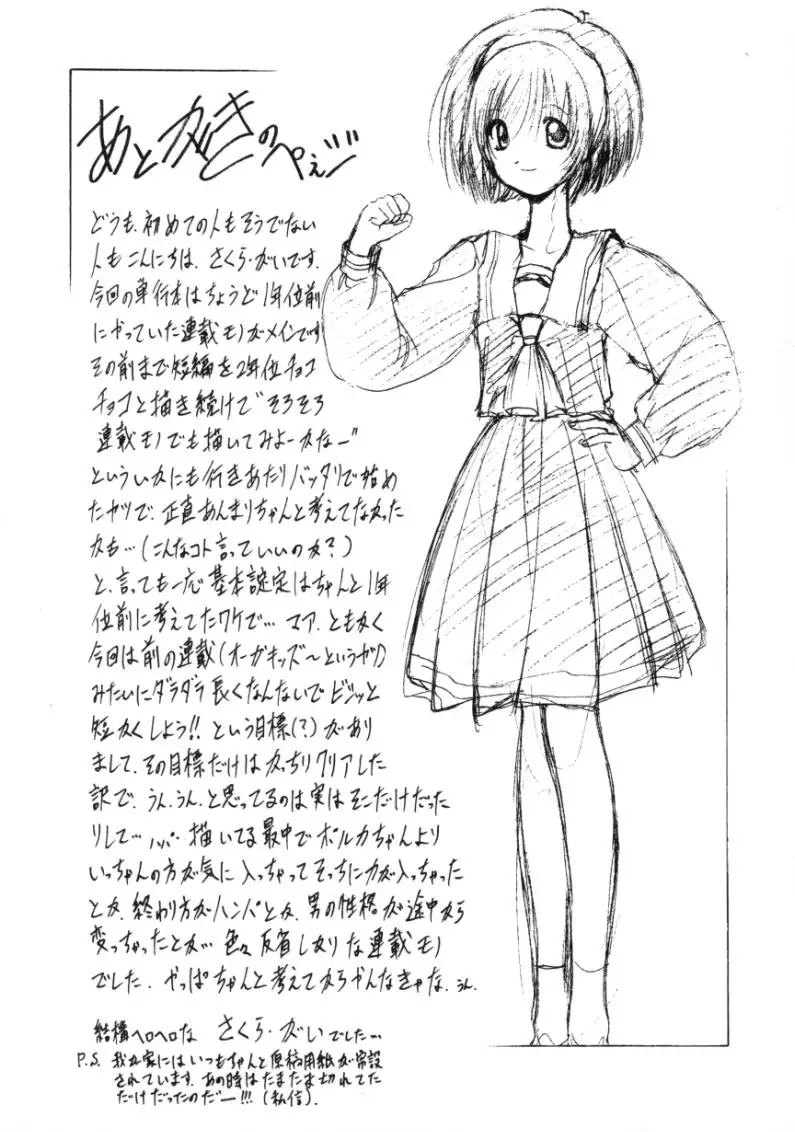 あとがきのぺぇジ
どうも、初めての人もそうでない
人もこんにちは、さくら・がいです。
今回の単行本はちょうど1年位前
にやっていた連載モノがメインです
その前まで短編を2年位チョコ
チョコと描き続けて“そろそろ
連載モノでも描いてみよーかなー”
といういかにも行きあたりバッタリで始め
たヤツで、正直あんまりちゃんと考えてなかった
かも…(こんなコト言っていいのか?)
と、言っても一応基本設定はちゃんと1年
位前に考えてたワケで… マア、ともかく
今回は前の連載(オーガキッズ〜というヤツ)
みたいにダラダラ長くなんないでビシッと
短かくしよう!! という目標(?)があり
まして、その目標だけはかっちりクリアした
訳で、うん、うん、と思ってるのは実はそこだけだった
りして… 描いてる最中でポルカちゃんより
いっちゃんの方が気に入っちゃってそっちに力が入っちゃった
とか、終わり方がハンパとか、男の性格が途中から
変っちゃったとか… 色々反省しきりな連載モノ
でした、やっぱちゃんと考えてからかんなきゃな、うん、
結構ヘロヘロな さくら・がいでした…
P.S. 我が家にはいつもちゃんと原稿用紙が常設
されています、あの時はたまたま切れてた
だけだったのだー!!! (私信).